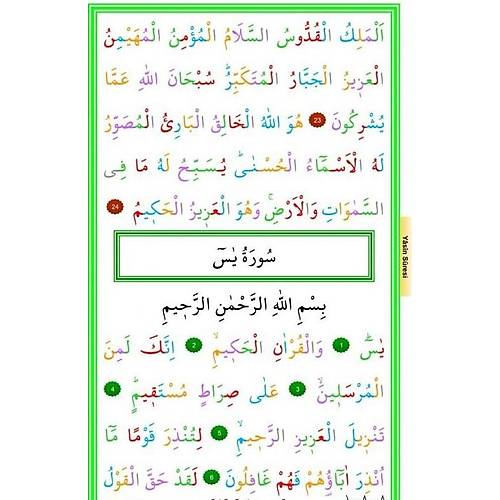 اَلْمَلِكُ الْقُدُّوسُ السَّلَامُ الْمُؤْمِنُ الْمُهَيْمِنُ
الْعَزِيزُ الْجَبَّارُ الْمُتَكَبِّرُۜ سُبْحَانَ اللّٰهِ عَمَّا
يُشْرِكُونَ 23 هُوَ اللّٰهُ الْخَالِقُ الْبَارِئُ الْمُصَوِّرُ
لَهُ الْاَسْمَٓاءُ الْحُسْنٰىۜ يُسَبِّحُ لَهُ مَا فِى
السَّمٰوَاتِ وَالْاَرْضِۚ وَهُوَ الْعَزِيزُ الْحَكِيمُ 24
سُورَةُ يٰسٓ
Yâsin Sûresi
بِسْمِ اللّٰهِ الرَّحْمٰنِ الرَّحِيمِ
يٰسٓۜ 1 وَالْقُرْاٰنِ الْحَكِيمِۙ 2 اِنَّكَ لَمِنَ
الْمُرْسَلِينَۙ 3 عَلٰى صِرَاطٍ مُسْتَقِيمٍۜ 4
تَنْزِيلَ الْعَزِيزِ الرَّحِيمِۙ 5 لِتُنْذِرَ قَوْمًا مَٓا
اُنْذِرَ اٰبَٓاؤُ۬هُمْ فَهُمْ غَافِلُونَ 6 لَقَدْ حَقَّ الْقَوْلُ